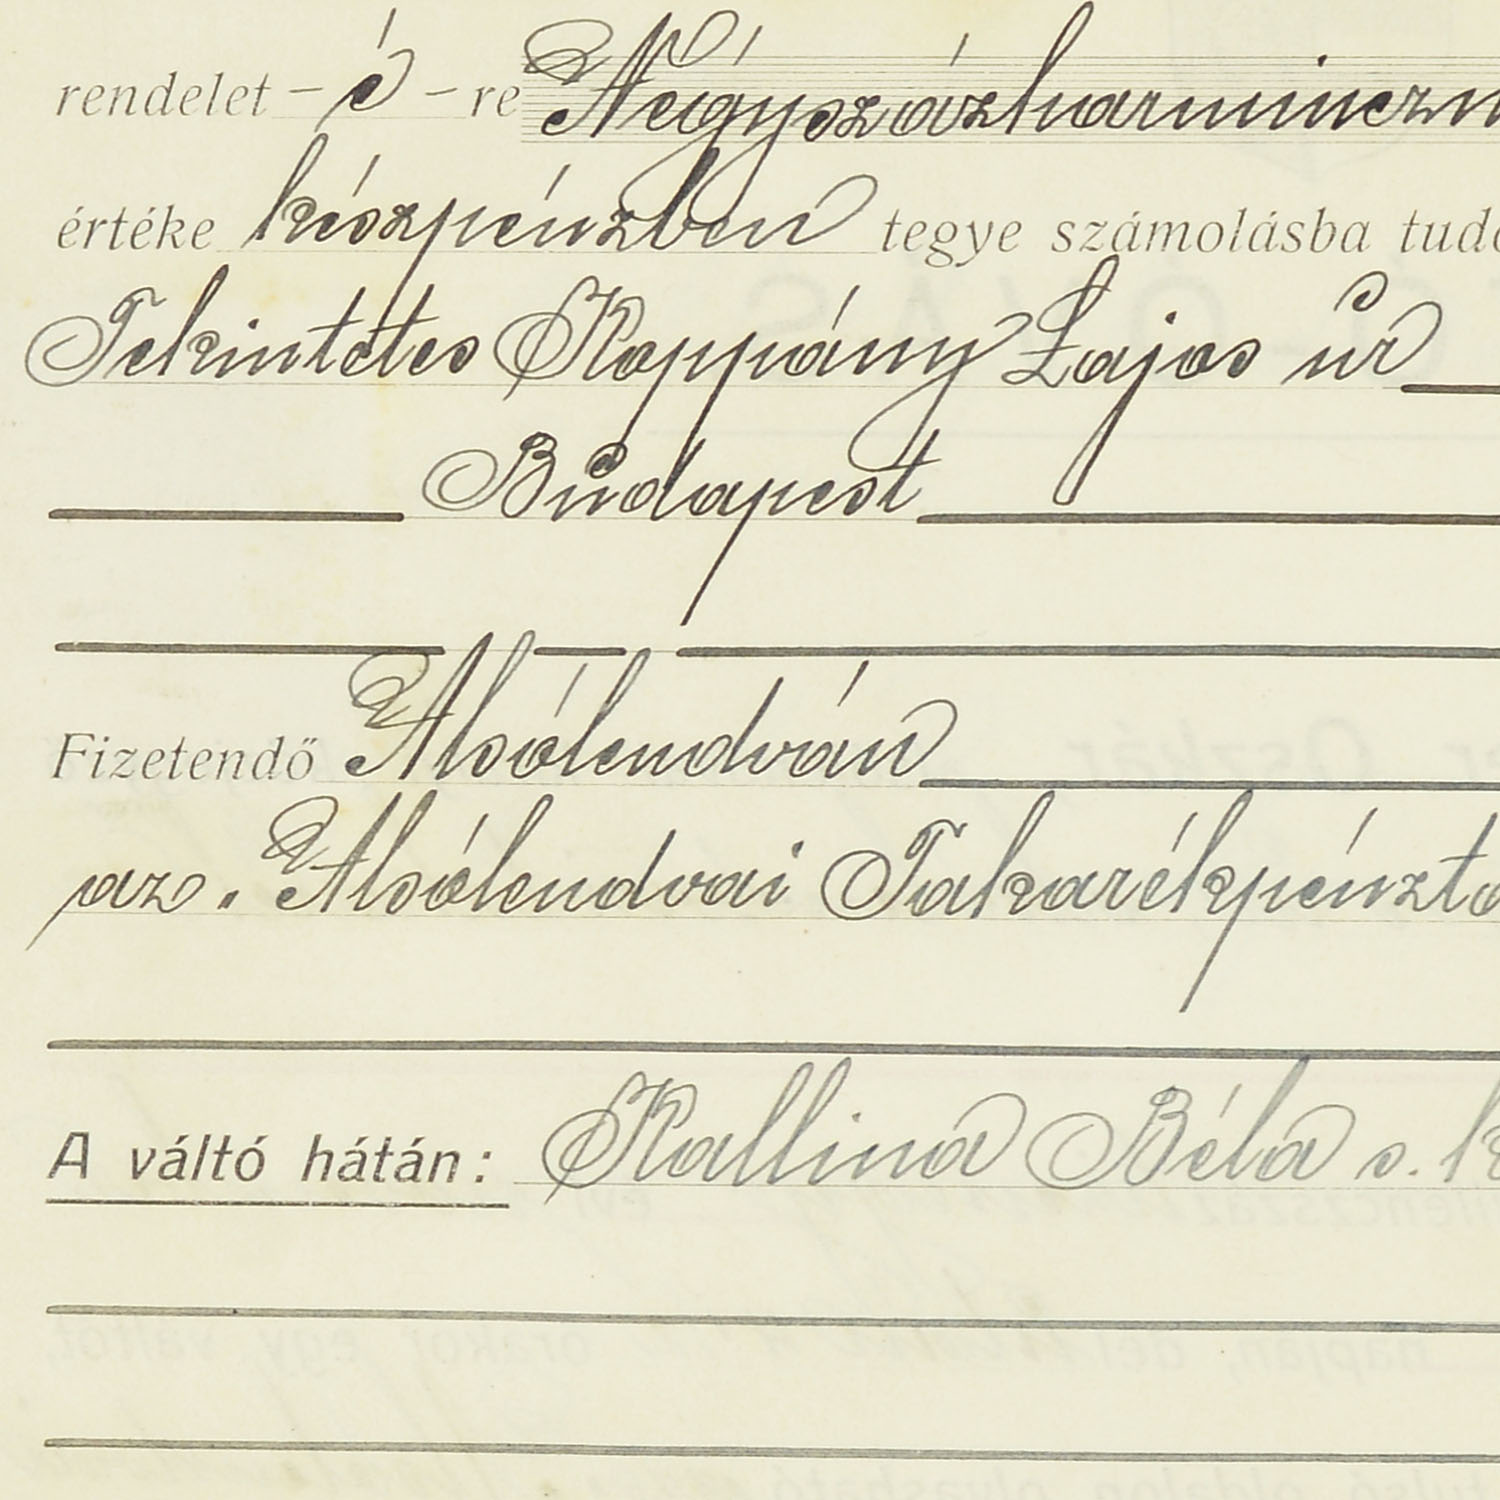 rendelet – é – re Négyszázharmincz
értéke készpénzben tegye számolásba
Tekintetes Koppány Lajos úr
Budapest
Fizetendő Alsólendván
az Alsólendvai Takarékpénztá
A váltó hátán: Kallina Béla s. k